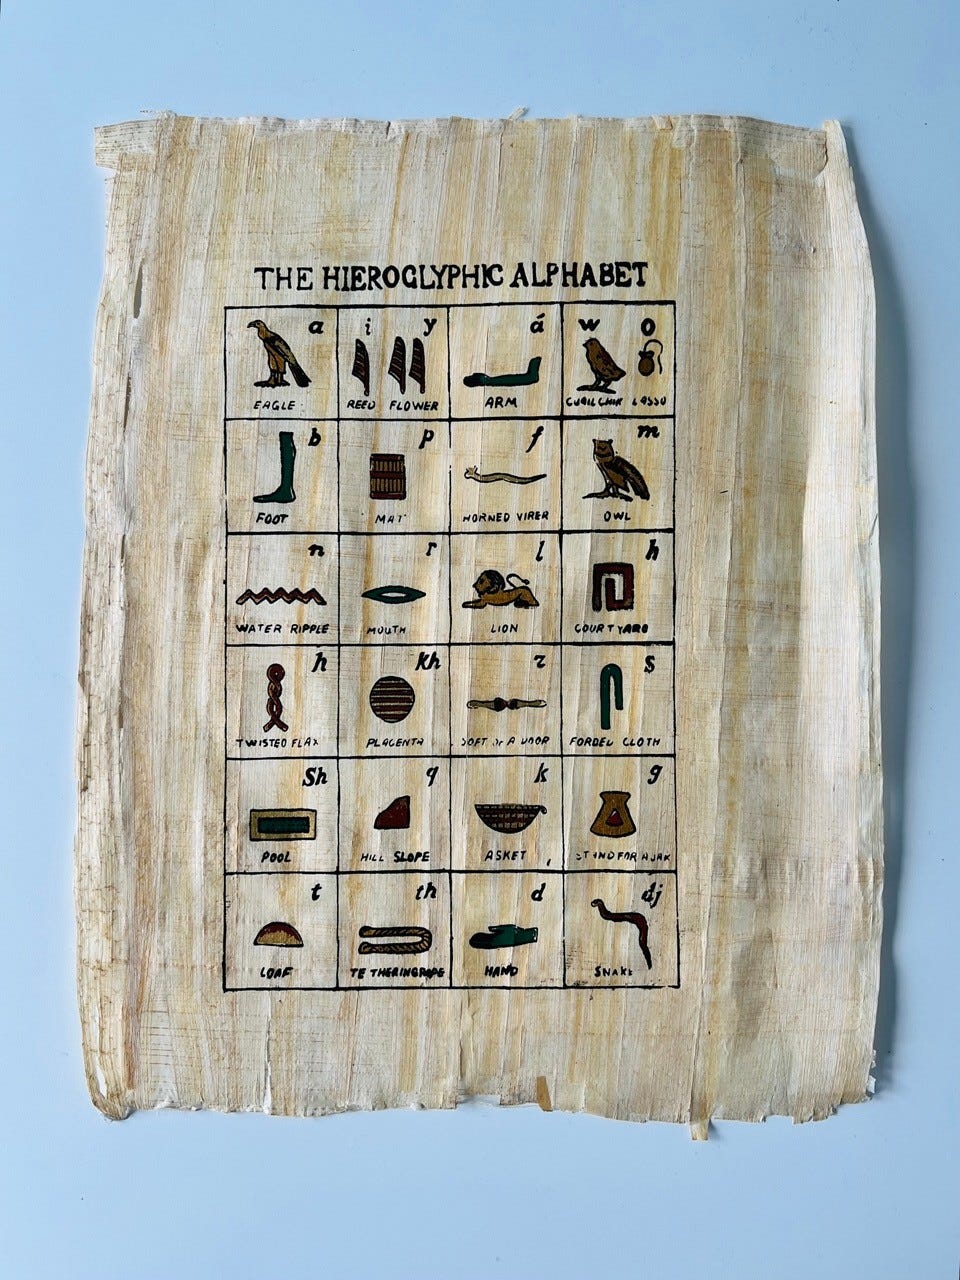 THE HIEROGLYPHIC ALPHABET
a i y á w o
EAGLE REED FLOWER ARM LASSO
b p f m
FOOT MAT HORNED VIRER OWL
n r l h
WATER RIPPLE MOUTH LION COURTYARD
h kh z s
TWISTED FLAX PLACENTA OF A DOOR CLOTH
Sh q k g
POOL HILL SLOPE ASKET STANDFOR A JAR
t th d dj
LOAF TETHERINGROPE HAND SNAKE